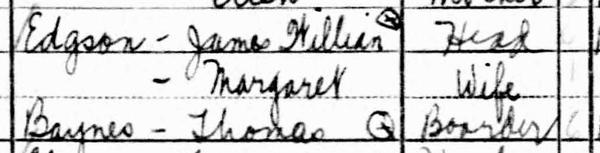 Edgson - James Willian Head
- Margaret Wife
Baynes - Thomas Boarder